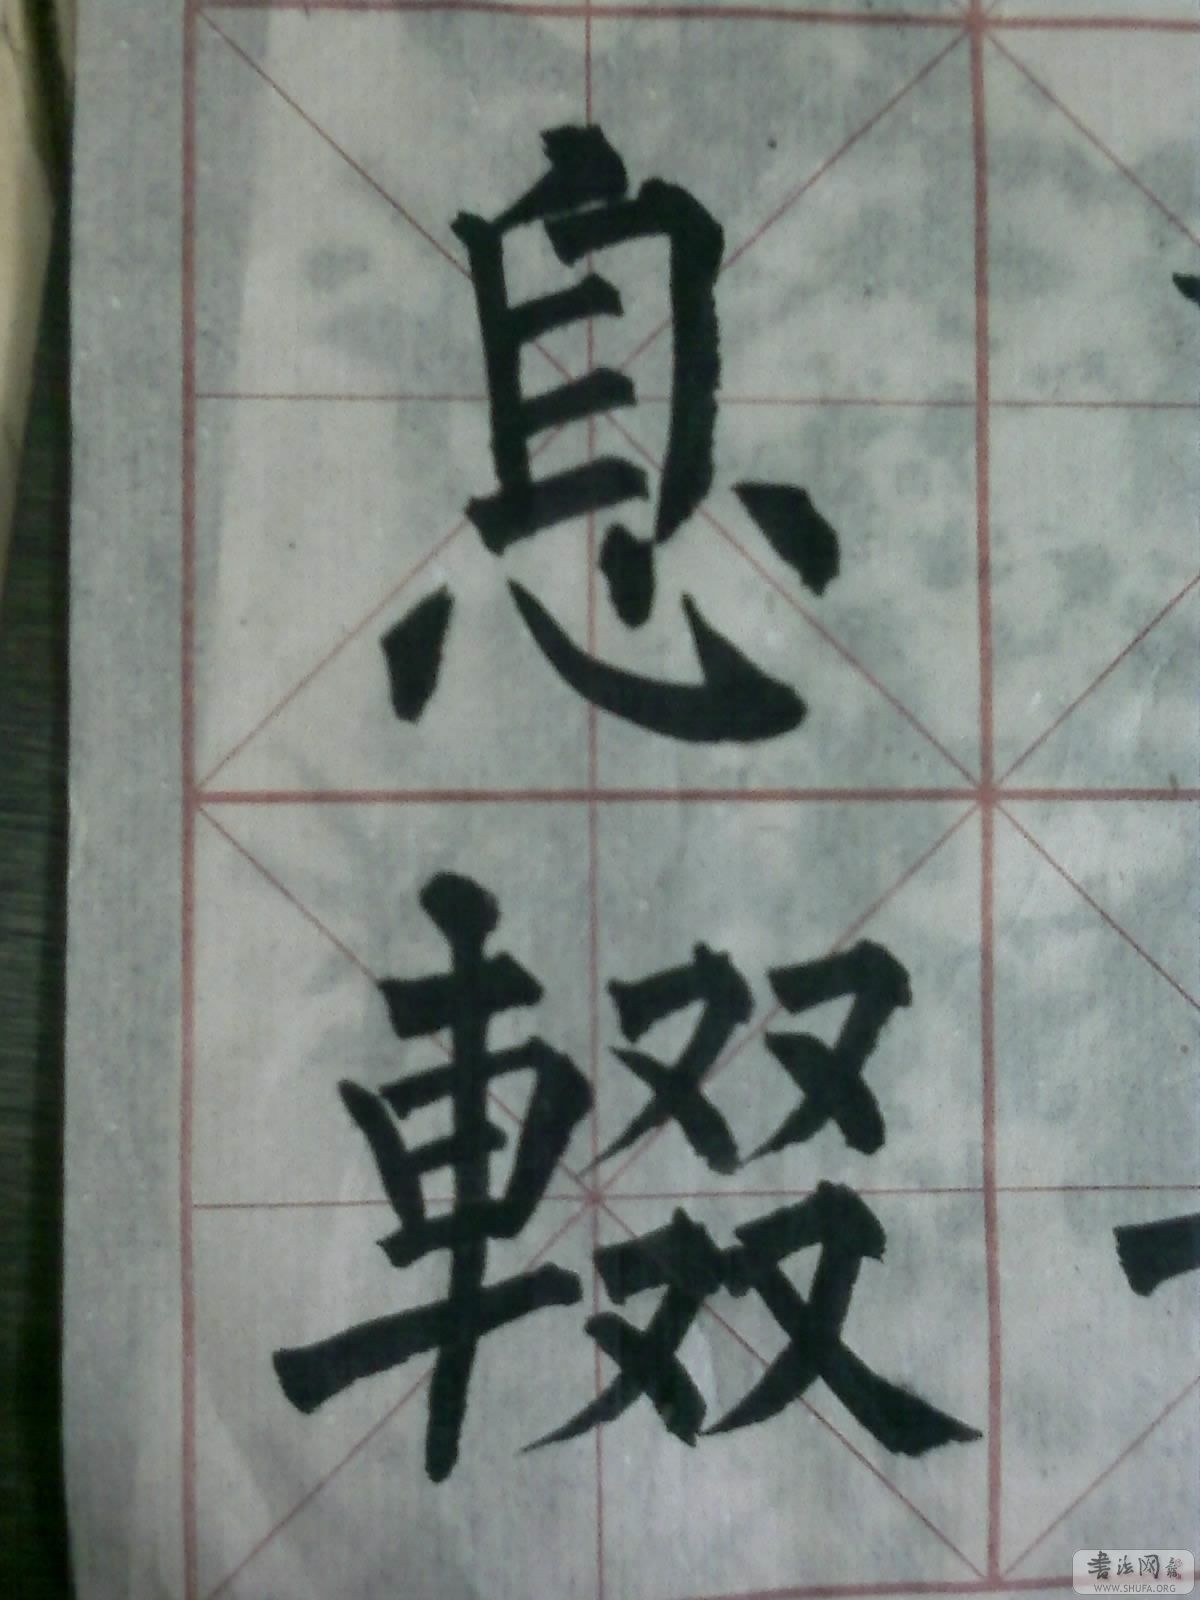 息
輟
书法网
WWW.SHUFA.ORG